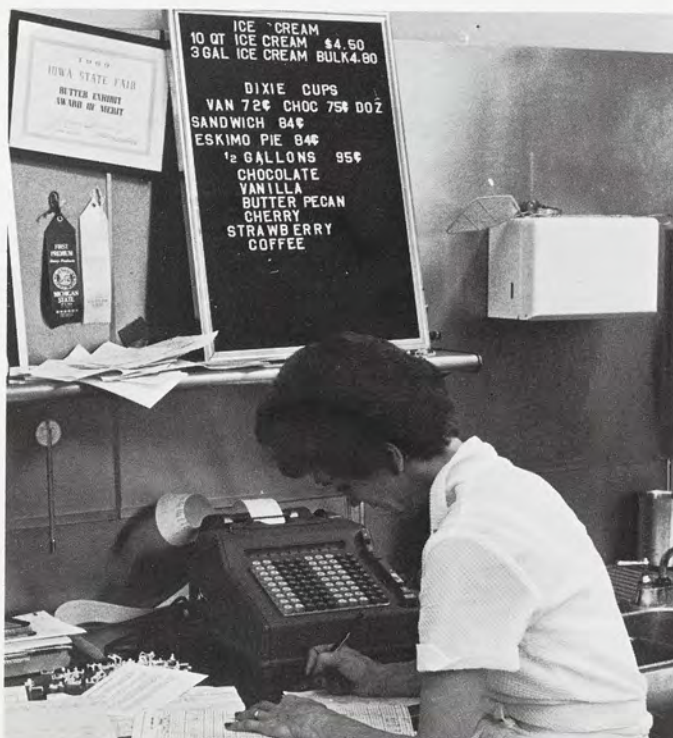 1969
IOWA STATE FAIR
BUTTER EXHIBIT
AWARD OF MERIT
FIRST
PREMIUM
MICHIGAN
STATE
ICE CREAM
10 QT ICE CREAM $4.50
3 GAL ICE CREAM BULK4.80
DIXIE CUPS
VAN 72¢ CHOC 75¢ DOZ
SANDWICH 84¢
ESKIMO PIE 84¢
1/2 GALLONS 95¢
CHOCOLATE
VANILLA
BUTTER PECAN
CHERRY
STRAWBERRY
COFFEE